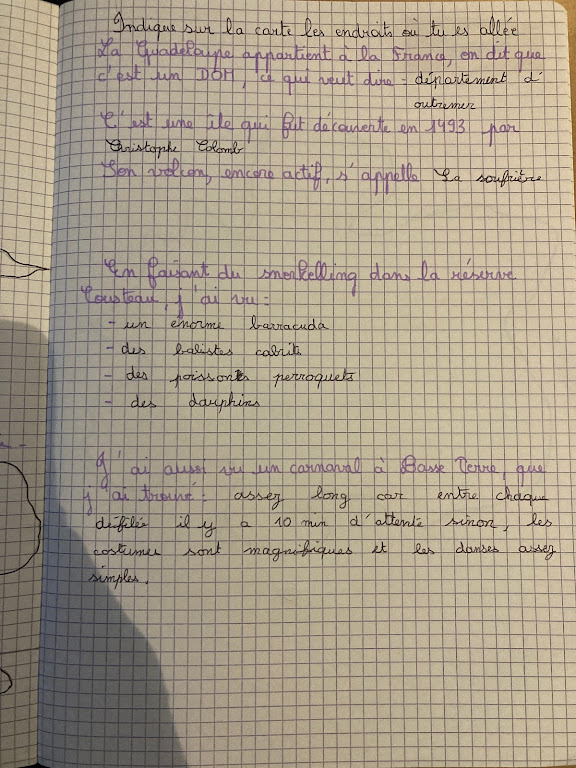 Indique sur la carte les endroits où tu es allée
La Guadeloupe appartient à la France, on dit que
c'est un DOM, ce qui veut dire - département d'
outremer
C'est une île qui fut découverte en 1493 par
Christophe Colomb
Son volcan, encore actif, s'appelle La soufrière
En faisant du snorkelling dans la réserve
Cousteau, j'ai vu :
- un énorme barracuda
- des balistes cabrits
- des poissons perroquets
- des dauphins
J'ai aussi vu un carnaval à Basse Terre, que
j'ai trouvé : assez long car entre chaque
défilés il y a 10 min d'attente sinon, les
costumes sont magnifiques et les danses assez
simples.